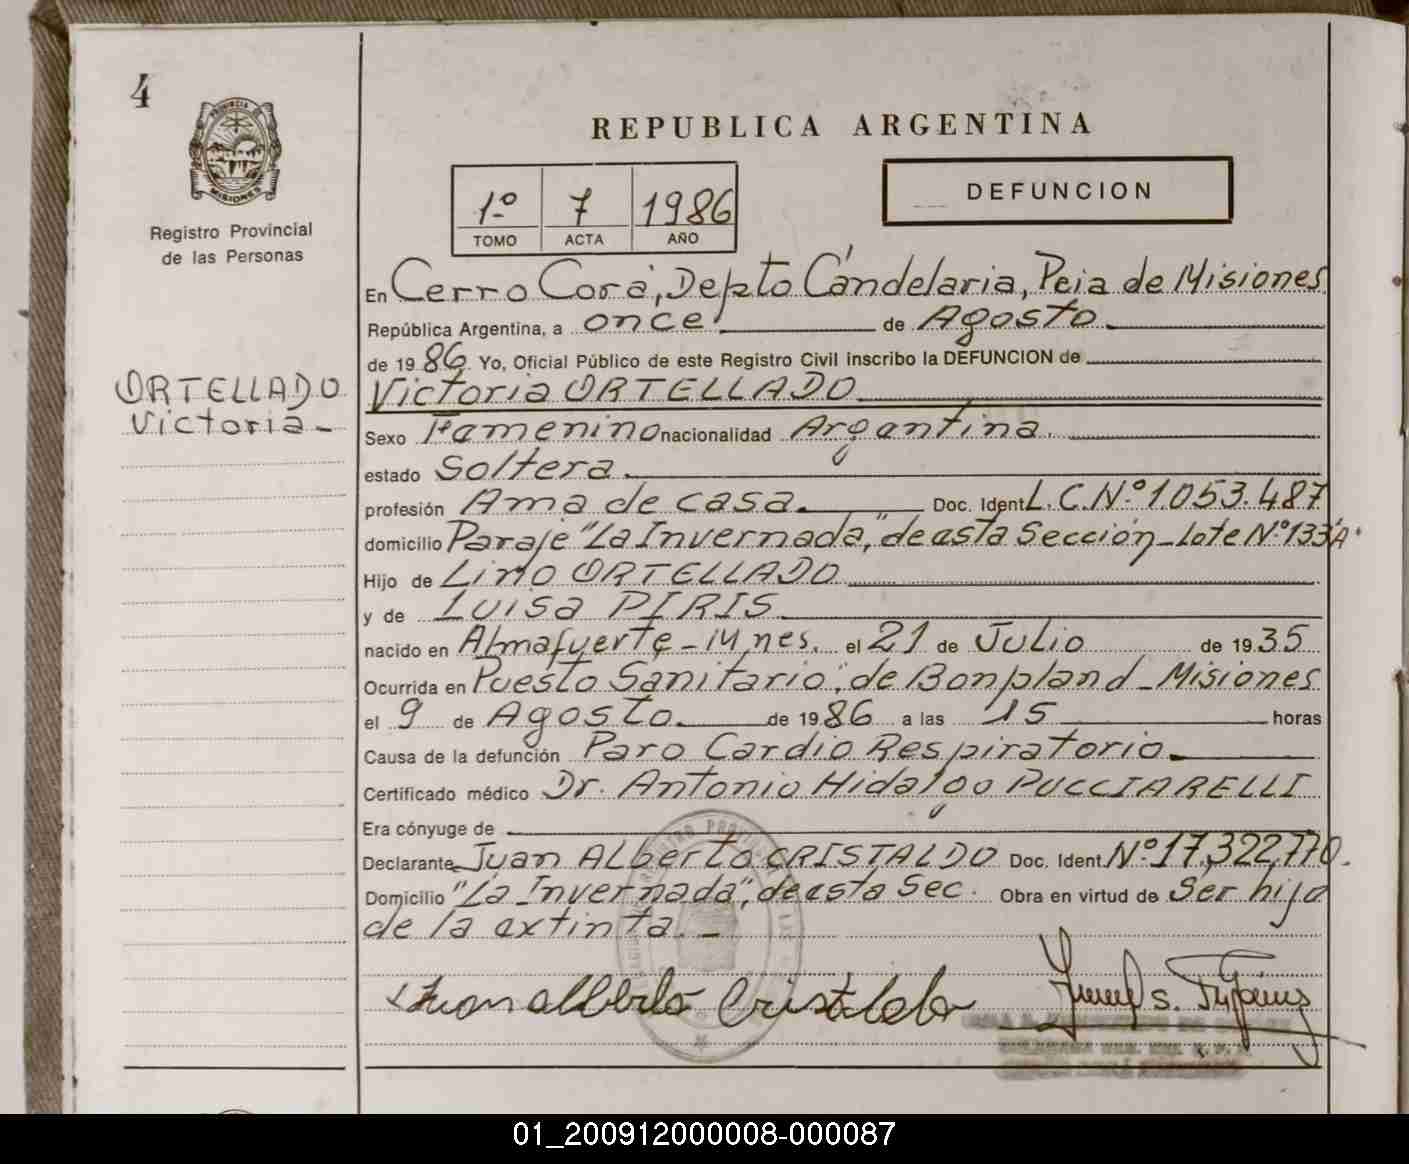 4
PROVINCIA DE
MISIONES
Registro Provincial
de las Personas
ORTELLADO
Victoria_
REPUBLICA ARGENTINA
1º 7 1986
TOMO ACTA AÑO
DEFUNCION
En Cerro Corá, Depto Candelaria, Pcia de Misiones
República Argentina, a once de Agosto
de 1986. Yo, Oficial Público de este Registro Civil inscribo la DEFUNCION de
Victoria ORTELLADO
Sexo Femenino nacionalidad Argentina.
estado Soltera
profesión Ama de casa. Doc. Ident. L.C.Nº 1.053.487
domicilio Paraje "La Invernada", de esta Sección_Lote Nº 133"A"
Hijo de Lino ORTELLADO
y de Luisa PIRIS
nacido en Almafuerte - Mnes. el 21 de Julio de 1935
Ocurrida en Puesto Sanitario, de Bonpland_Misiones
el 9 de Agosto. de 1986 a las 15 horas
Causa de la defunción Paro Cardio Respiratorio.
Certificado médico Dr. Antonio Hidalgo PUCCIARELLI
Era cónyuge de
Declarante Juan ALberto CRISTALDO Doc. Ident. Nº 17.322.770.
Domicilio "La Invernada", de esta Sec. Obra en virtud de Ser hijo
de la extinta. _
Juan Alberto Cristaldo
01_200912000008-000087